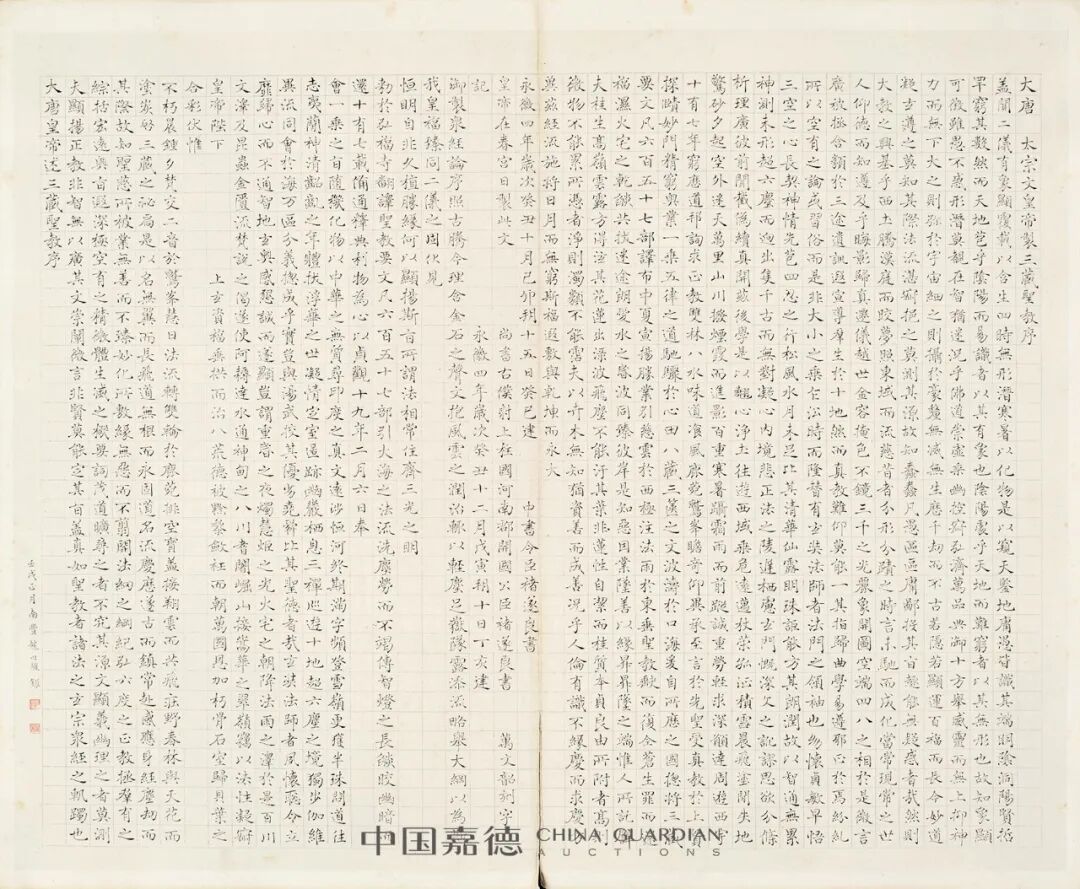 大唐 太宗文皇帝製三藏聖教序
盖聞二儀有象顯覆載以含生四時無形潛寒暑以化物是以窺天鑒地庸愚皆識其端明陰洞陽賢哲
罕窮其數然而天地苞乎陰陽而易識者以其有象也陰陽處乎天地而難窮者以其無形也故知象顯
可徵雖愚不惑形潛莫覩在智猶迷況乎佛道崇虛乘幽控寂弘濟萬品典御十方舉威靈而無上抑神
力而無下大之則彌於宇宙細之則攝於豪釐無滅無生歷千劫而不古若隱若顯運百福而長今妙道
凝玄遵之莫知其際法流湛寂挹之莫測其源故知蠢蠢凡愚區區庸鄙投其旨趣能無疑惑者哉然則
大教之興基乎西土騰漢庭而皎夢照東域而流慈昔者分形分蹟之時言未馳而成化當常現常之世
人仰德而知遵及乎晦影歸真遷儀越世金容掩色不鏡三千之光麗象開圖空端四八之相於是微言
廣被拯含類於三途遺訓遐宣導群生於十地然而真教難仰莫能一其指歸曲學易遵邪正於焉紛糺
所以空有之論或習俗而是非大小之乘乍㳂時而隆替有玄奘法師者法門之領袖也幼懷貞敏早悟
三空之心長契神情先苞四忍之行松風水月未足比其清華仙露明珠詎能方其朗潤故以智通無累
神測未形超六塵而迥出隻千古而無對凝心內境悲正法之陵遲栖慮玄門慨深文之訛謬思欲分條
析理廣彼前聞截偽續真開茲後學是以翹心淨土往遊西域乘危遠邁杖策孤征積雪晨飛途間失地
驚砂夕起空外迷天萬里山川撥煙霞而進影百重寒暑躡霜雨而前蹤誠重勞輕求深願達周遊西宇
十有七年窮歷道邦詢求正教雙林八水味道湌風鹿菀鷲峯瞻奇仰異承至言於先聖受真教於上賢
探賾妙門精窮奧業一乘五律之道馳驟於心田八藏三篋之文波濤於口海爰自所歷之國總將三藏
要文凡六百五十七部譯布中夏宣揚勝業引慈雲於西極注法雨於東垂聖教缺而復全蒼生罪而還
福濕火宅之乾燄共拔迷途朗愛水之昏波同臻彼岸是知惡因業墜善以緣昇昇墜之端惟人所託譬
夫桂生高嶺雲露方得泫其花蓮出淥波飛塵不能汙其葉非蓮性自潔而桂質本貞良由所附者高則
微物不能累所憑者淨則濁類不能霑夫以卉木無知猶資善而成善況乎人倫有識不緣慶而求慶方
冀茲經流施將日月而無窮斯福遐敷與乾坤而永大
永徽四年歲次癸丑十月己卯朔十五日癸巳建 中書令臣褚遂良書
皇帝在春宮日製此文 尚書右僕射上柱國河南郡開國公臣褚遂良書 萬文韶刻字
記 永徽四年歲次癸丑十二月戊寅朔十日丁亥建
御製衆經論序照古騰今理含金石之聲文抱風雲之潤治輒以輕塵足嶽墜露添流略舉大綱以為斯
我皇福臻同二儀之固伏見
恒明自非久植勝緣何以顯揚斯旨所謂法相常住齊三光之明
勅於弘福寺翻譯聖教要文凡六百五十七部引大海之法流洗塵勞而不竭傳智燈之長燄皎幽暗而
還十有七載備通釋典利物為心以貞觀十九年二月六日奉
會一乘之旨隨機化物以中華之無質尋印度之真文遠涉恒河終期滿字頻登雪嶺更獲半珠問道往
志夷簡神清齠齔之年體拔浮華之世凝情定室匿迹幽巖栖息三禪巡遊十地超六塵之境獨步伽維
異流同會於海万區分義摠成乎實豈與湯武校其優劣堯舜比其聖德者哉玄奘法師者夙懷聰令立
靡歸心而不通智地玄奧感懇誠而遂顯豈謂重昏之夜燭慧炬之光火宅之朝降法雨之澤於是百川
文澤及昆蟲金匱流梵說之偈遂使阿耨達水通神甸之八川耆闍崛山接嵩華之翠嶺竊以法性凝寂
皇帝陛下 上玄資福垂拱而治八荒德被黔黎斂衽而朝萬國恩加朽骨石室歸貝葉之
合彩伏惟
不朽晨鍾夕梵交二音於鷲峯慧日法流轉雙輪於鹿菀排空寶蓋接翔雲而共飛莊野春林與天花而
塗炭啓三藏之秘扃是以名無翼而長飛道無根而永固道名流慶歷遂古而鎮常赴感應身經塵劫而
其際故知聖慈所被業無善而不臻妙化所敷緣無惡而不翦開法網之綱紀弘六度之正教拯群有之
綜括宏遠奧旨遐深極空有之精微體生滅之機要詞茂道曠尋之者不究其源文顯義幽理之者莫測
夫顯揚正教非智無以廣其文崇闡微言非賢莫能定其旨蓋真如聖教者諸法之玄宗衆經之軌躅也
大唐皇帝述三藏聖教序
中国嘉德 CHINA GUARDIAN
AUCTIONS